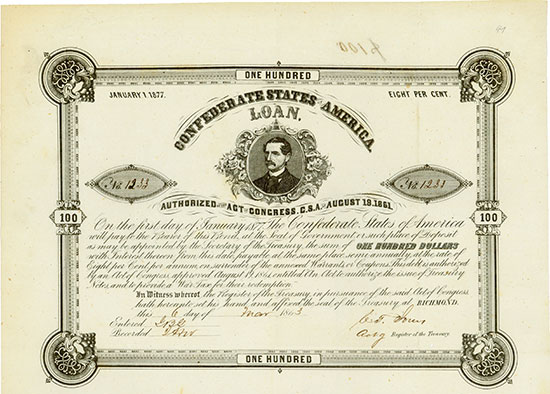 £100
ONE HUNDRED
JANUARY 1. 1877.
EIGHT PER CENT.
CONFEDERATE STATES AMERICA.
LOAN.
No. 1233
No. 1233
AUTHORIZED BY ACT OF CONGRESS, C.S.A. OF AUGUST 19.1861.
100
100
On the first day of January 1877, The Confederate States of America
will pay to the Bearer of this Bond, at the Seat of Government or such place of Deposit
as may be appointed by the Secretary of the Treasury, the sum of ONE HUNDRED DOLLARS
with Interest thereon from this date, payable at the same place, semi annually, at the rate of
Eight per Cent per annum, on surrender of the annexed Warrants or Coupons. This debt is authorized
by an Act of Congress, approved August 19, 1861, entitled "An Act to authorize the issue of Treasury
Notes, and to provide a War Tax for their redemption."
In Witness whereof, the Register of the Treasury, in pursuance of the said Act of Congress,
hath hereunto set his hand and affixed the seal of the Treasury, at RICHMOND,
this 6 day of Mar 1863
Entered
Recorded
Register of the Treasury.
ONE HUNDRED